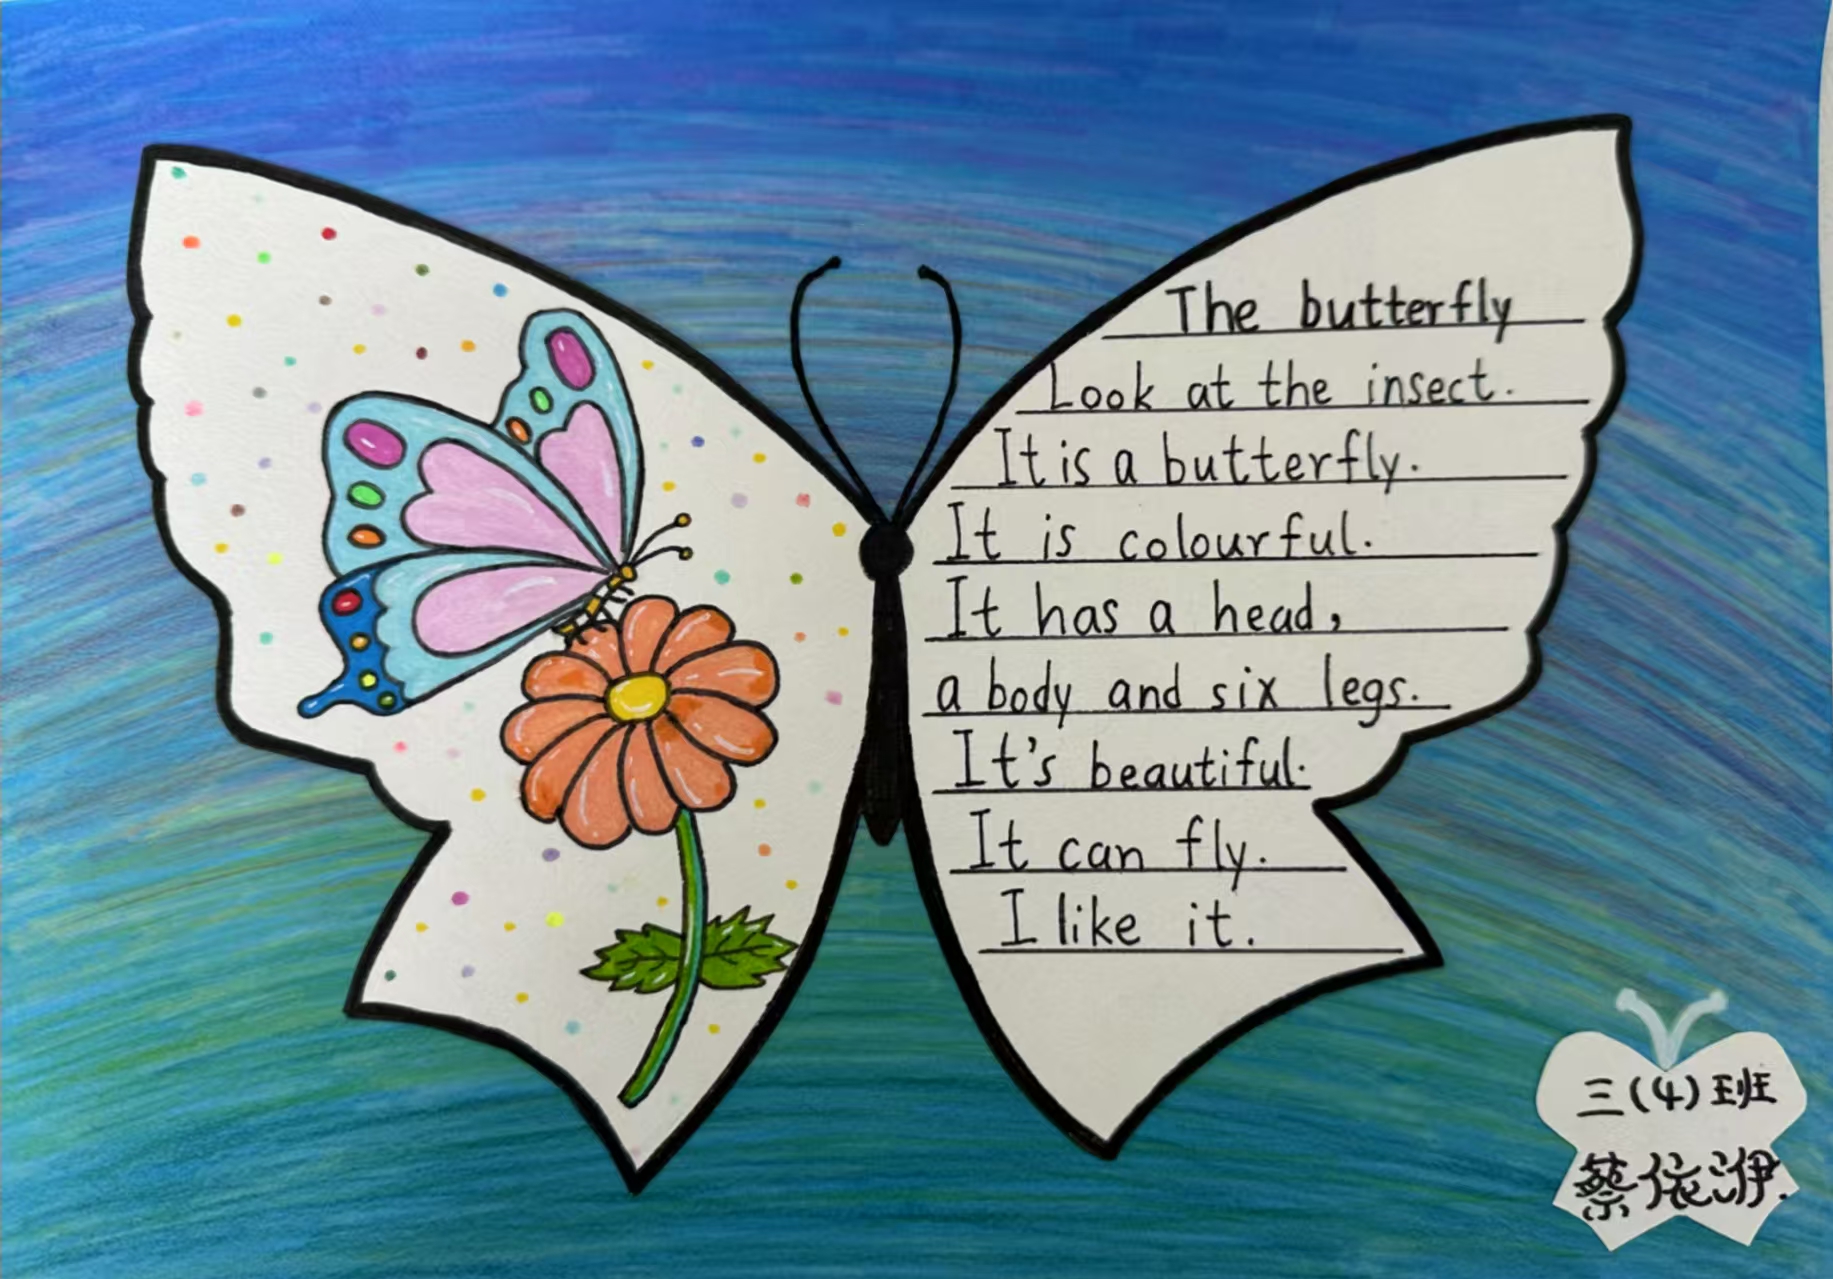 The butterfly
Look at the insect.
It is a butterfly.
It is colourful.
It has a head,
a body and six legs.
It's beautiful.
It can fly.
I like it.
三(4)班
蔡依洢.